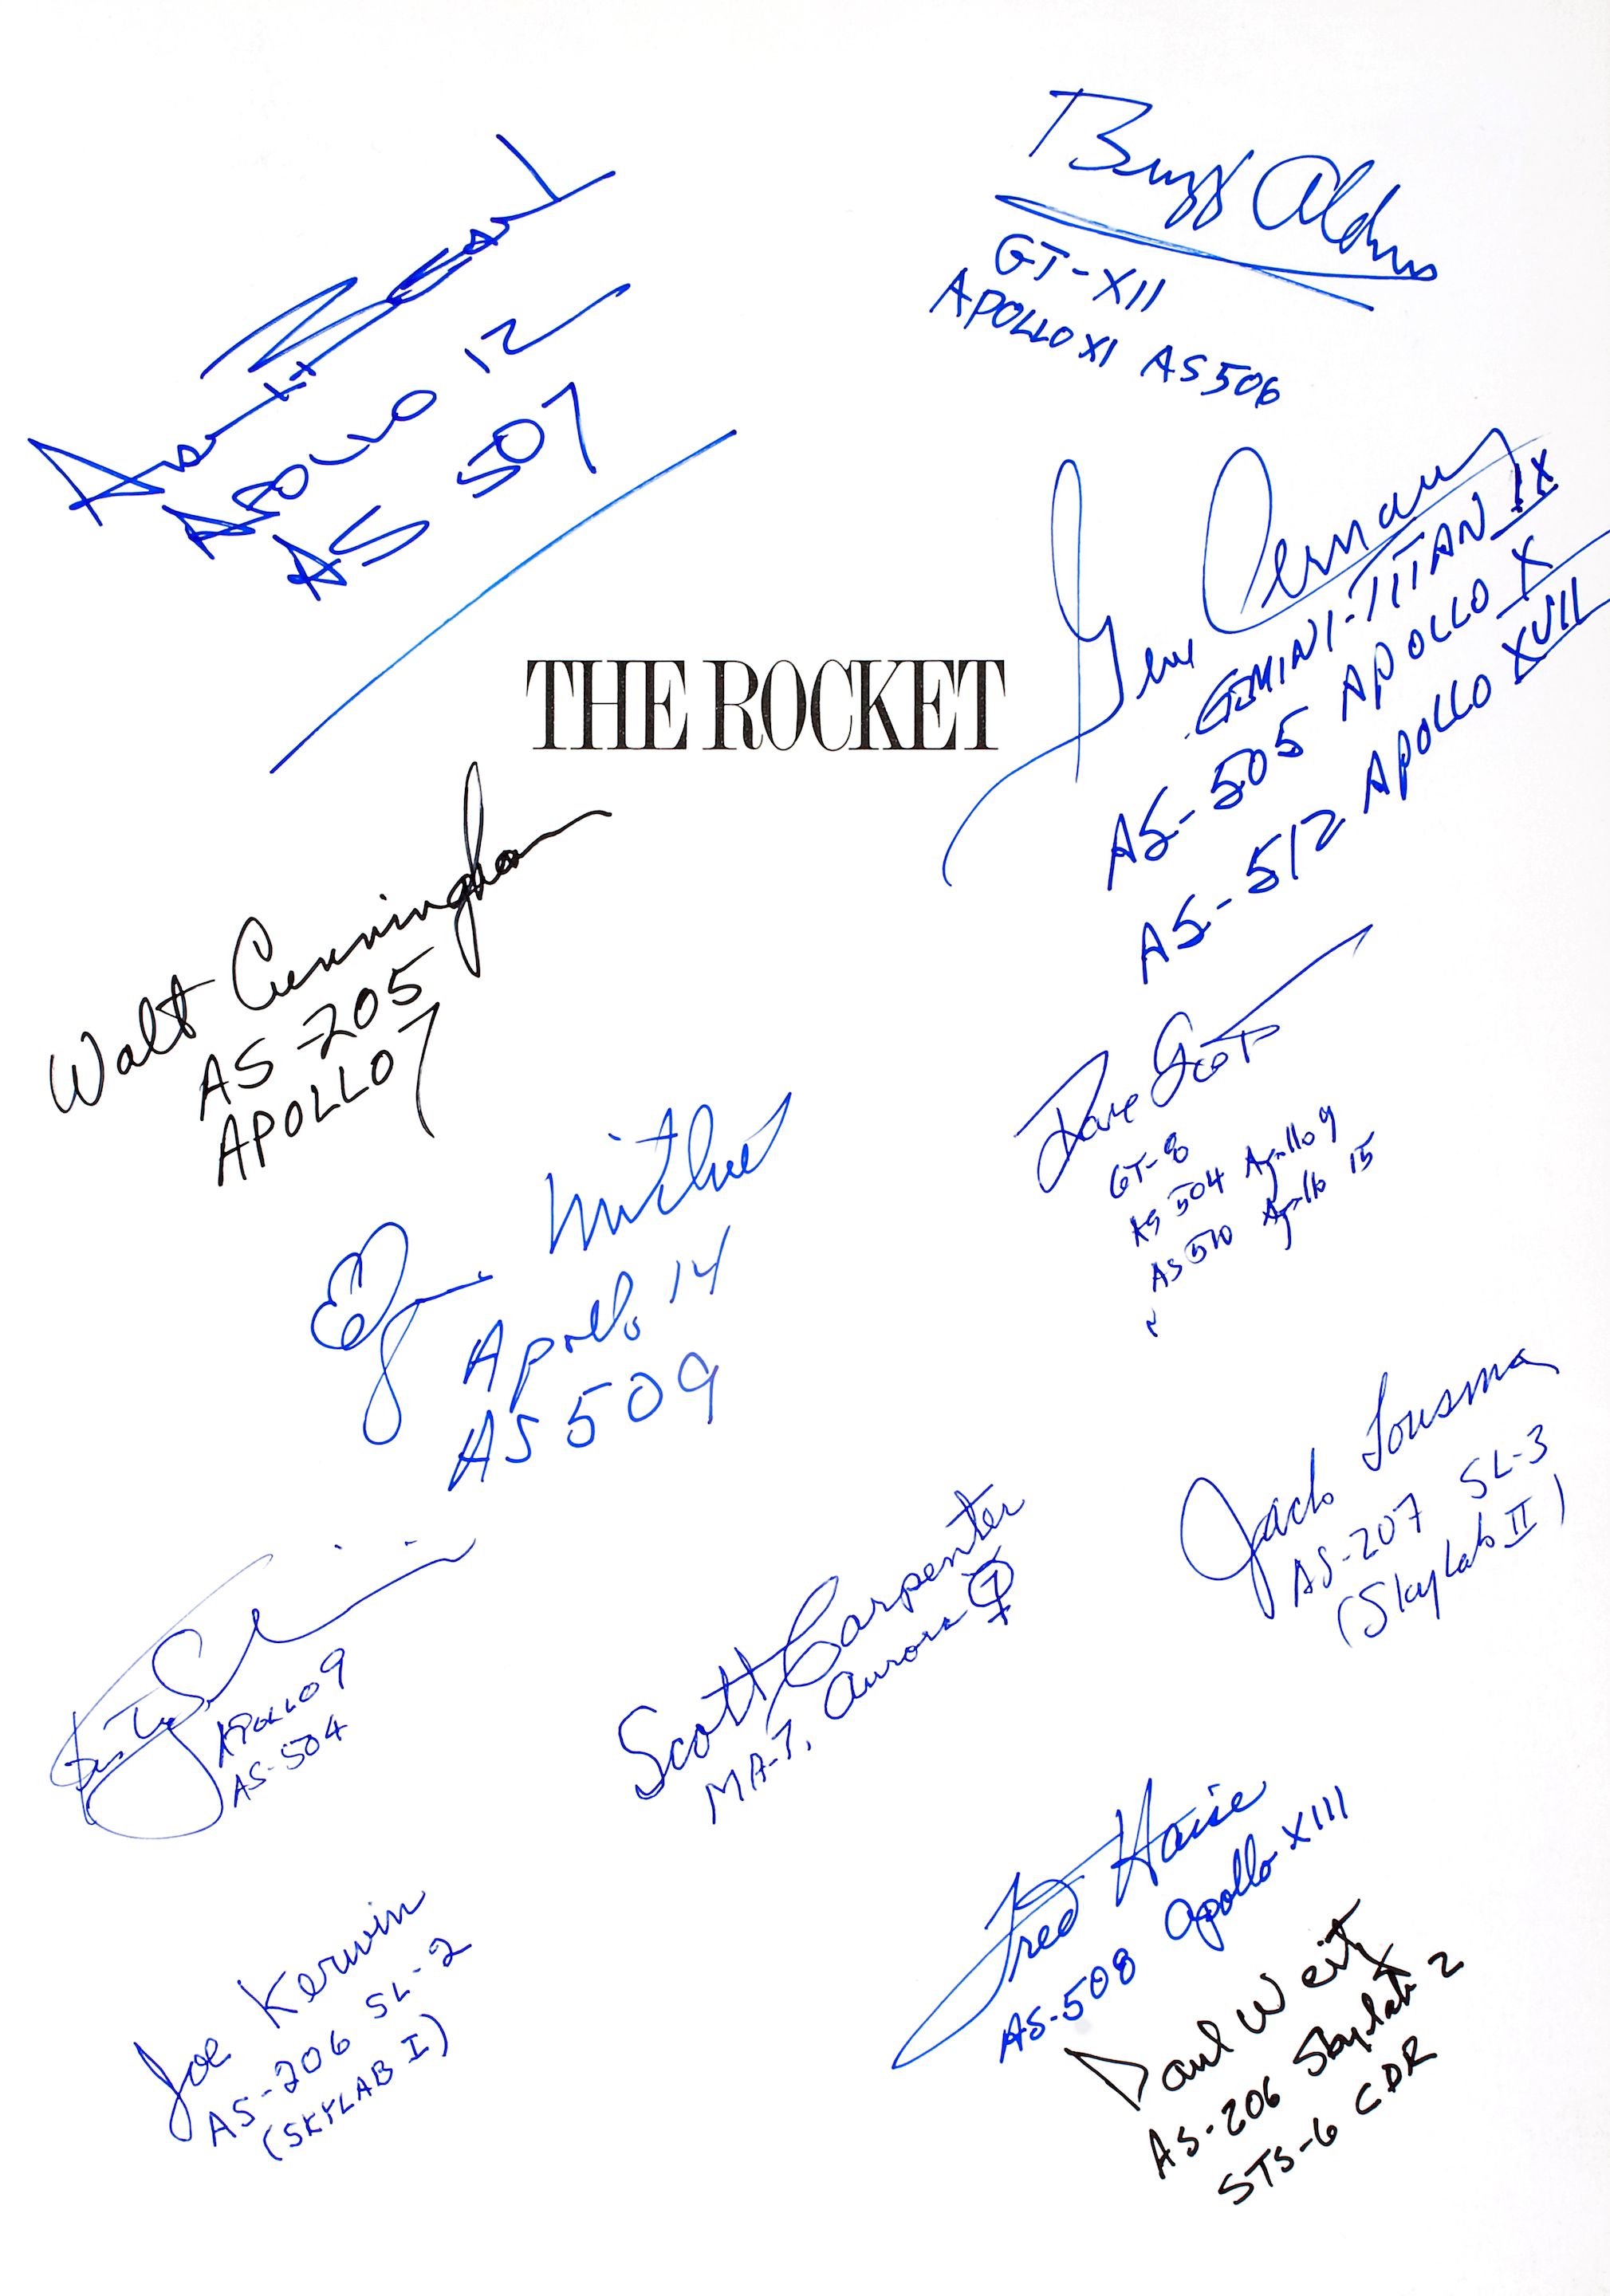 Buzz Aldrin
GT-XII
APOLLO XI AS 506
APOLLO 12
AS 507
Gene Cernan
GEMINI-TITAN IX
AS-505 APOLLO X
AS-512 APOLLO XVII
THE ROCKET
Walt Cunningham
AS-205
APOLLO 7
Dave Scott
GT-8
AS 504 Apollo 9
AS 510 Apollo 15
Edgar Mitchell
Apollo 14
AS 509
Jack Lousma
AS-207 SL-3
(Skylab II)
Scott Carpenter
MA-7, Aurora 7
APOLLO 9
AS-504
Fred Haise
AS-508 Apollo XIII
Joe Kerwin
AS-206 SL-2
(SKYLAB I)
Paul Weitz
AS-206 Skylab 2
STS-6 CDR